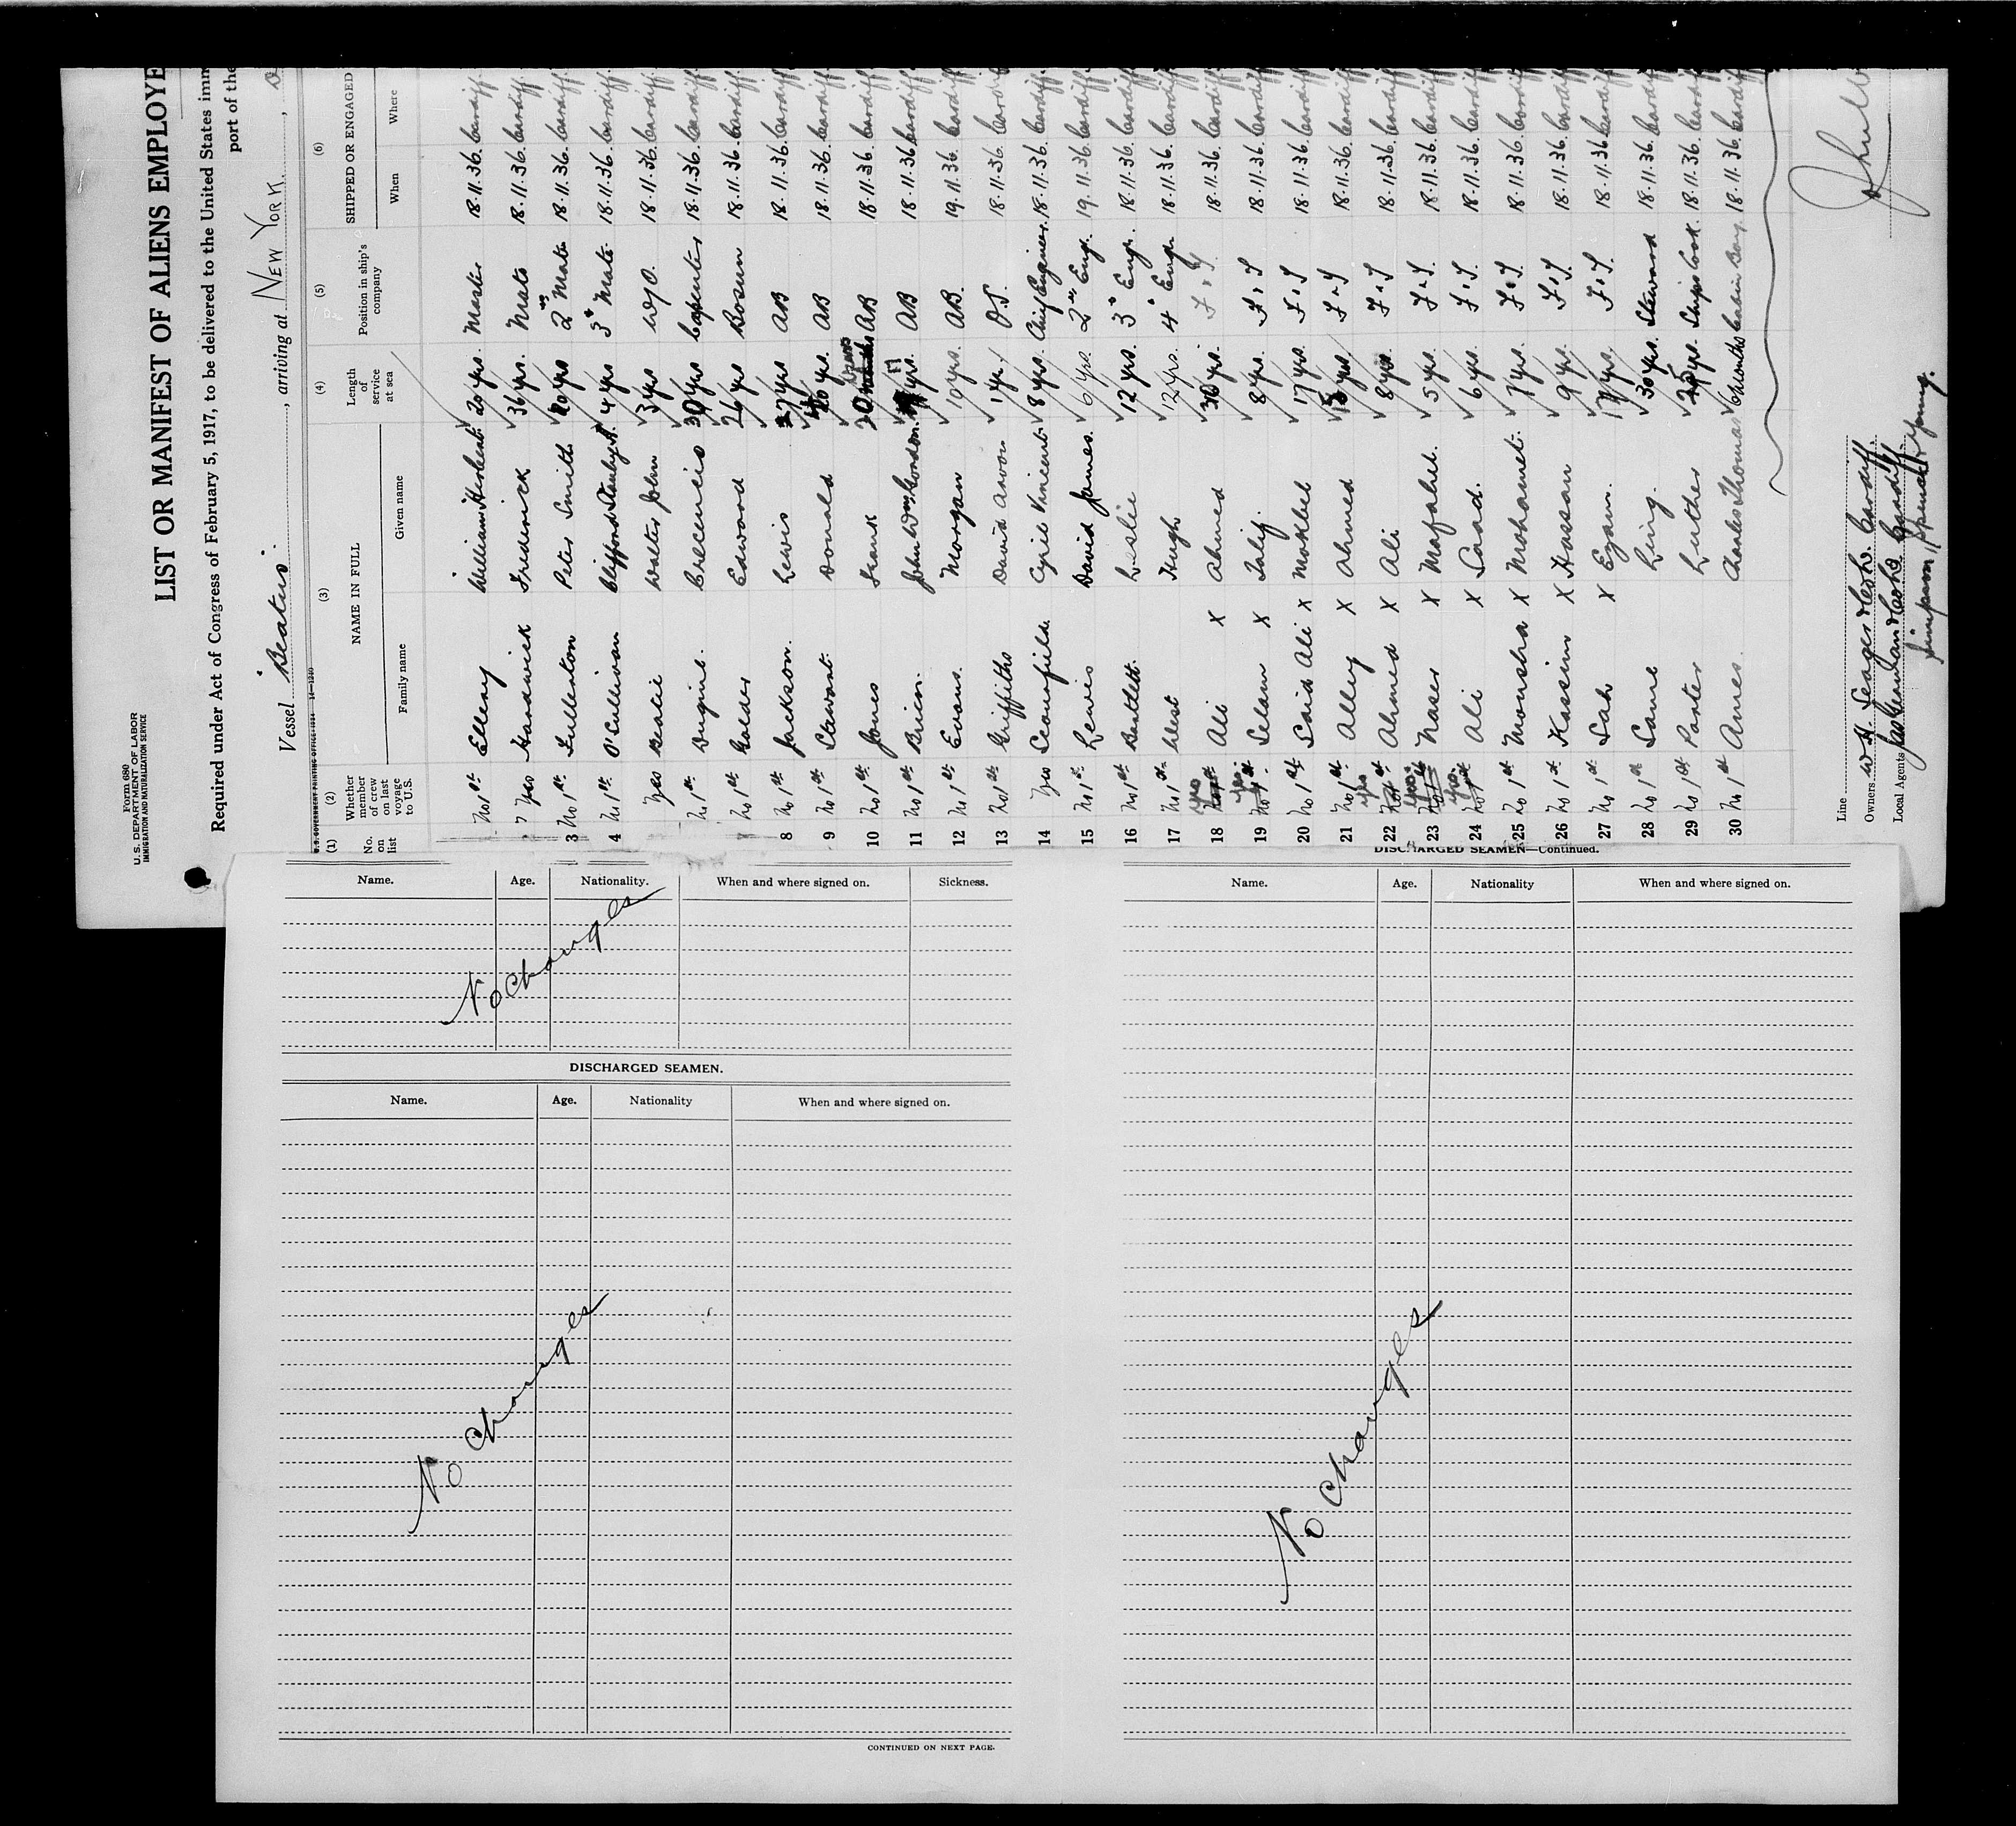 Form 680
U.S. DEPARTMENT OF LABOR
IMMIGRATION AND NATURALIZATION SERVICE
LIST OR MANIFEST OF ALIENS EMPLOYE
Required under Act of Congress of February 5, 1917, to be delivered to the United States imm
port of the
Vessel "Beatus", arriving at NEW YORK,
(1) (2) (3) (4) (5) (6)
No. on list Whether member of crew on last voyage to U.S. NAME IN FULL Length of service at sea Position in ship's company SHIPPED OR ENGAGED
Family name Given name When Where
No 1st Ellery William Herbert 20 yrs. Master 18.11.36. Cardiff.
Yes Hardwick Frederick 36 yrs. Mate 18.11.36. Cardiff.
3 No 1st Fullerton Peter Smith 20 yrs 2nd Mate 18.11.36. Cardiff.
4 No 1st O'Sullivan Clifford Stanley 4 yrs 3rd Mate 18.11.36. Cardiff.
Yes Beatie Walter John 3 yrs W/O. 18.11.36. Cardiff.
No 1st 30 yrs Carpenter 18.11.36. Cardiff.
No 1st Golder Edward 26 yrs Bosun 18.11.36. Cardiff.
8 No 1st Jackson. Lewis 27 yrs AB 18.11.36. Cardiff.
9 No 1st Stewart. Donald 20 yrs. AB 18.11.36. Cardiff.
10 No 1st Jones Frank 20 years AB 18.11.36. Cardiff.
11 No 1st Brien. John Wm Gordon. yrs. AB 18.11.36 Cardiff.
12 No 1st Evans. Morgan 10 yrs. AB. 19.11.36. Cardiff.
13 No 1st Griffiths David Arvon 1 yr. O.S. 18.11.36. Cardiff.
14 Yes Scourfield. Cyril Vincent. 8 yrs. Chief Engineer. 18.11.36. Cardiff.
15 No 1st Lewis David James. 6 yrs. 2nd Engr. 19.11.36. Cardiff.
16 No 1st Bartlett. Leslie 12 yrs. 3rd Engr. 18.11.36. Cardiff.
17 No 1st West Hugh 12 yrs. 4th Engr 18.11.36. Cardiff.
18 Yes Ali X Ahmed 30 yrs. F & T. 18.11.36. Cardiff.
19 Yes. Selam X Salif. 8 yrs. F & T 18.11.36. Cardiff.
20 No 1st Said Ali X Mokbel 17 yrs. F & T 18.11.36. Cardiff.
21 No 1st Alley X Ahmed yrs F & T 18.11.36. Cardiff.
22 Yes Ahmed X Ali 8 yrs. F & T 18.11.36. Cardiff.
23 Yes. Naser X 5 yrs. F & T. 18.11.36. Cardiff.
24 Yes. Ali X Saad. 6 yrs. F & T. 18.11.36. Cardiff.
25 No 1st X Mohamet. 7 yrs. F & T. 18.11.36. Cardiff.
26 No 1st Kassim X Hassan 9 yrs. F & T. 18.11.36. Cardiff.
27 No 1st X yrs. F & T. 18.11.36 Cardiff.
28 No 1st Same Ling. 30 yrs. Steward 18.11.36. Cardiff.
29 No 1st Porter Luther yrs. Ships Cook. 18.11.36. Cardiff.
30 No 1st Ames. Charles Thomas 6 Months Cabin Boy 18.11.36. Cardiff.
Line
Owners W.H. Seager & Co Ld. Cardiff.
Local Agents
Simpson, Spence & Young.
John W
Name. Age. Nationality. When and where signed on. Sickness.
No Changes
DISCHARGED SEAMEN.
Name. Age. Nationality When and where signed on.
No Changes
CONTINUED ON NEXT PAGE.
DISCHARGED SEAMEN—Continued.
Name. Age. Nationality When and where signed on.
No Changes